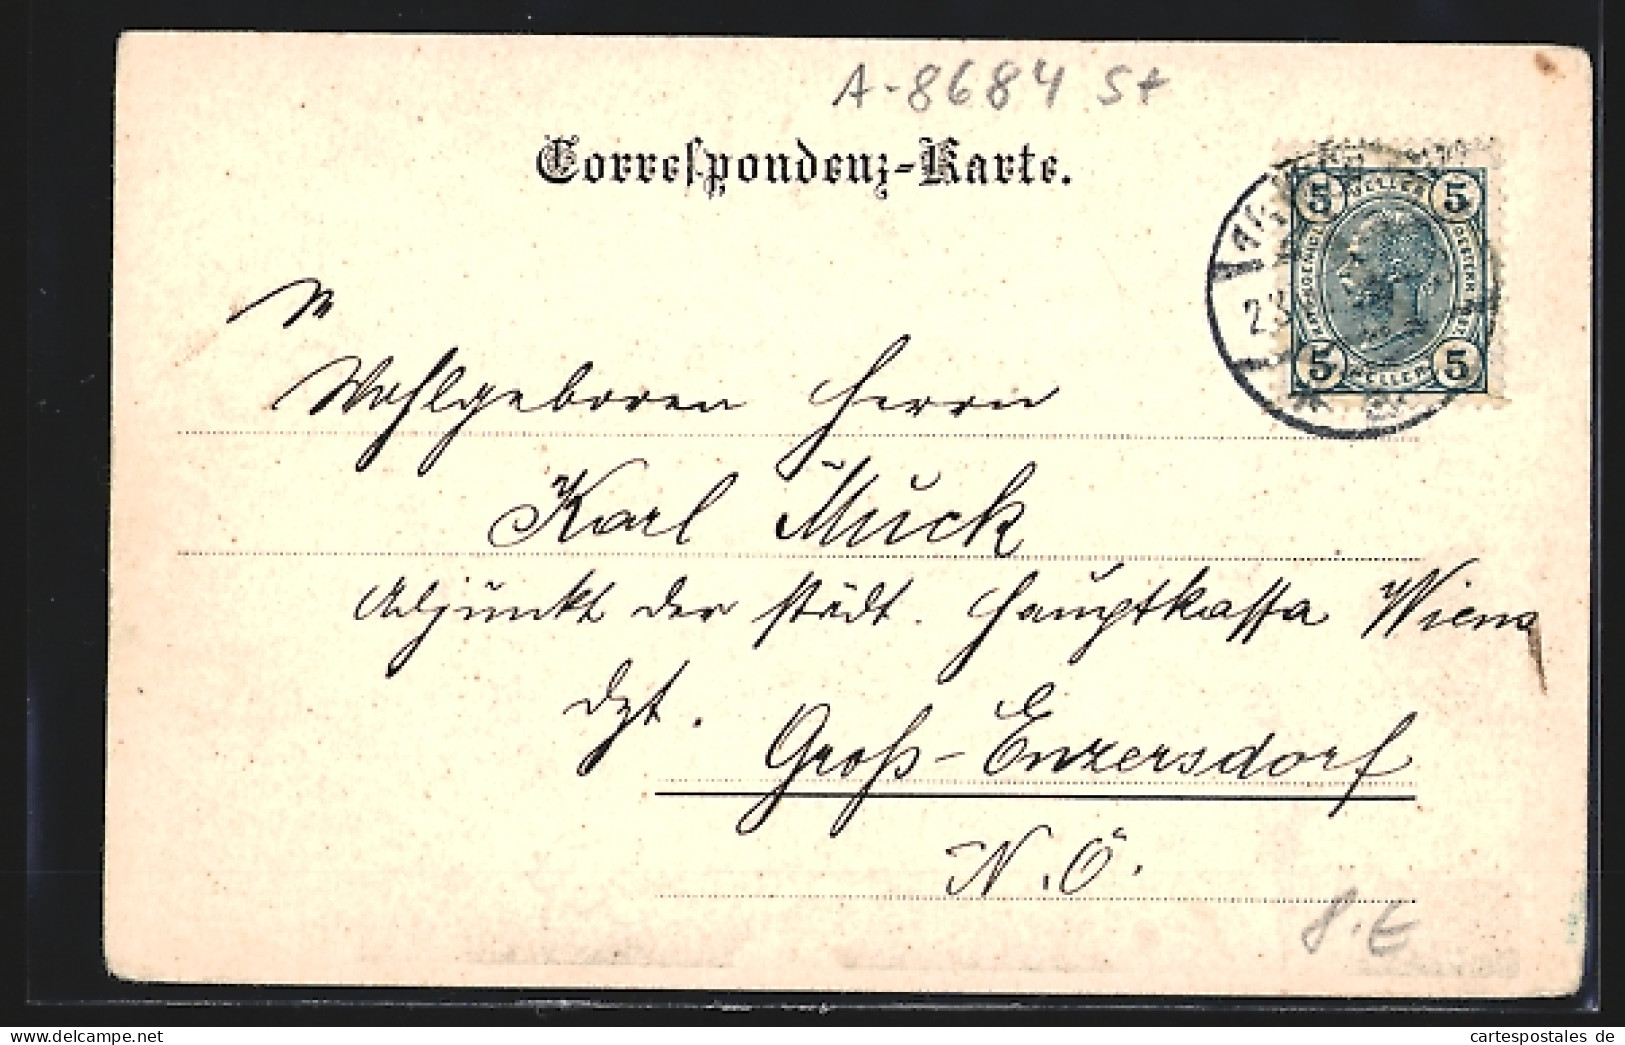 A-8684 St
Correspondenz-Karte.
5 HELLER 5
5 HELLER 5
23
Wohlgeboren Herrn
Karl Muck
Adjunkt der städt. Hauptkassa Wiens
dzt.
Groß-Enzersdorf
N.Ö.
8.E
delcampe.net
cartespostales de